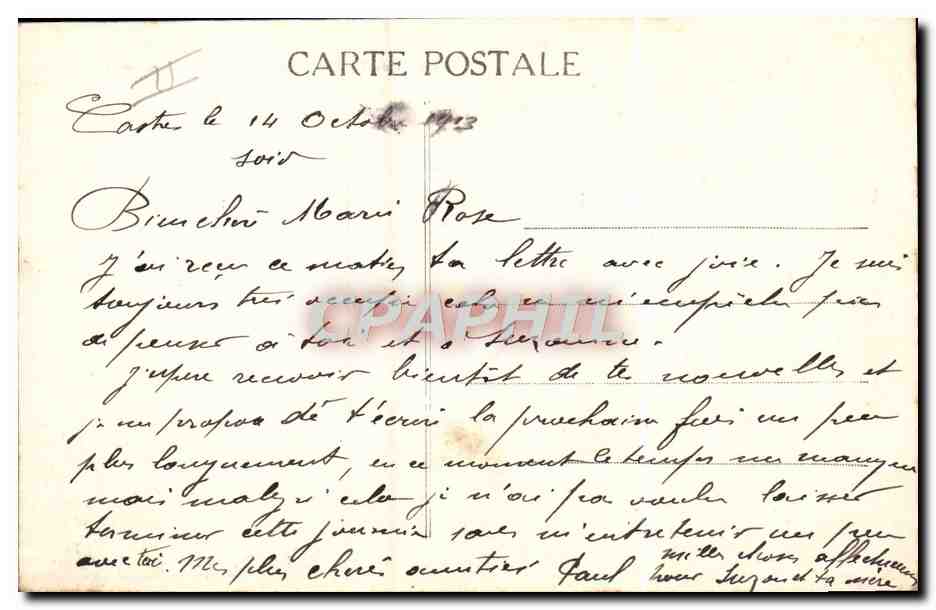 II
CARTE POSTALE
Castres le 14 Octobre 1913
soir
Bien chère Marie Rose
J'ai reçu ce matin ta lettre avec joie. Je suis
toujours très occupé cela ne m'empêche pas
de penser à toi et à Suzanne.
J'espère recevoir bientôt de tes nouvelles et
je me propose de t'écrire la prochaine fois un peu
plus longuement, en ce moment le temps me manque
mais malgré cela je n'ai pas voulu laisser
terminer cette journée sans m'entretenir un peu
avec toi. Mes plus chères amitiés Paul
milles choses affectueuses
pour Suzon et ta mère
CPAPHIL